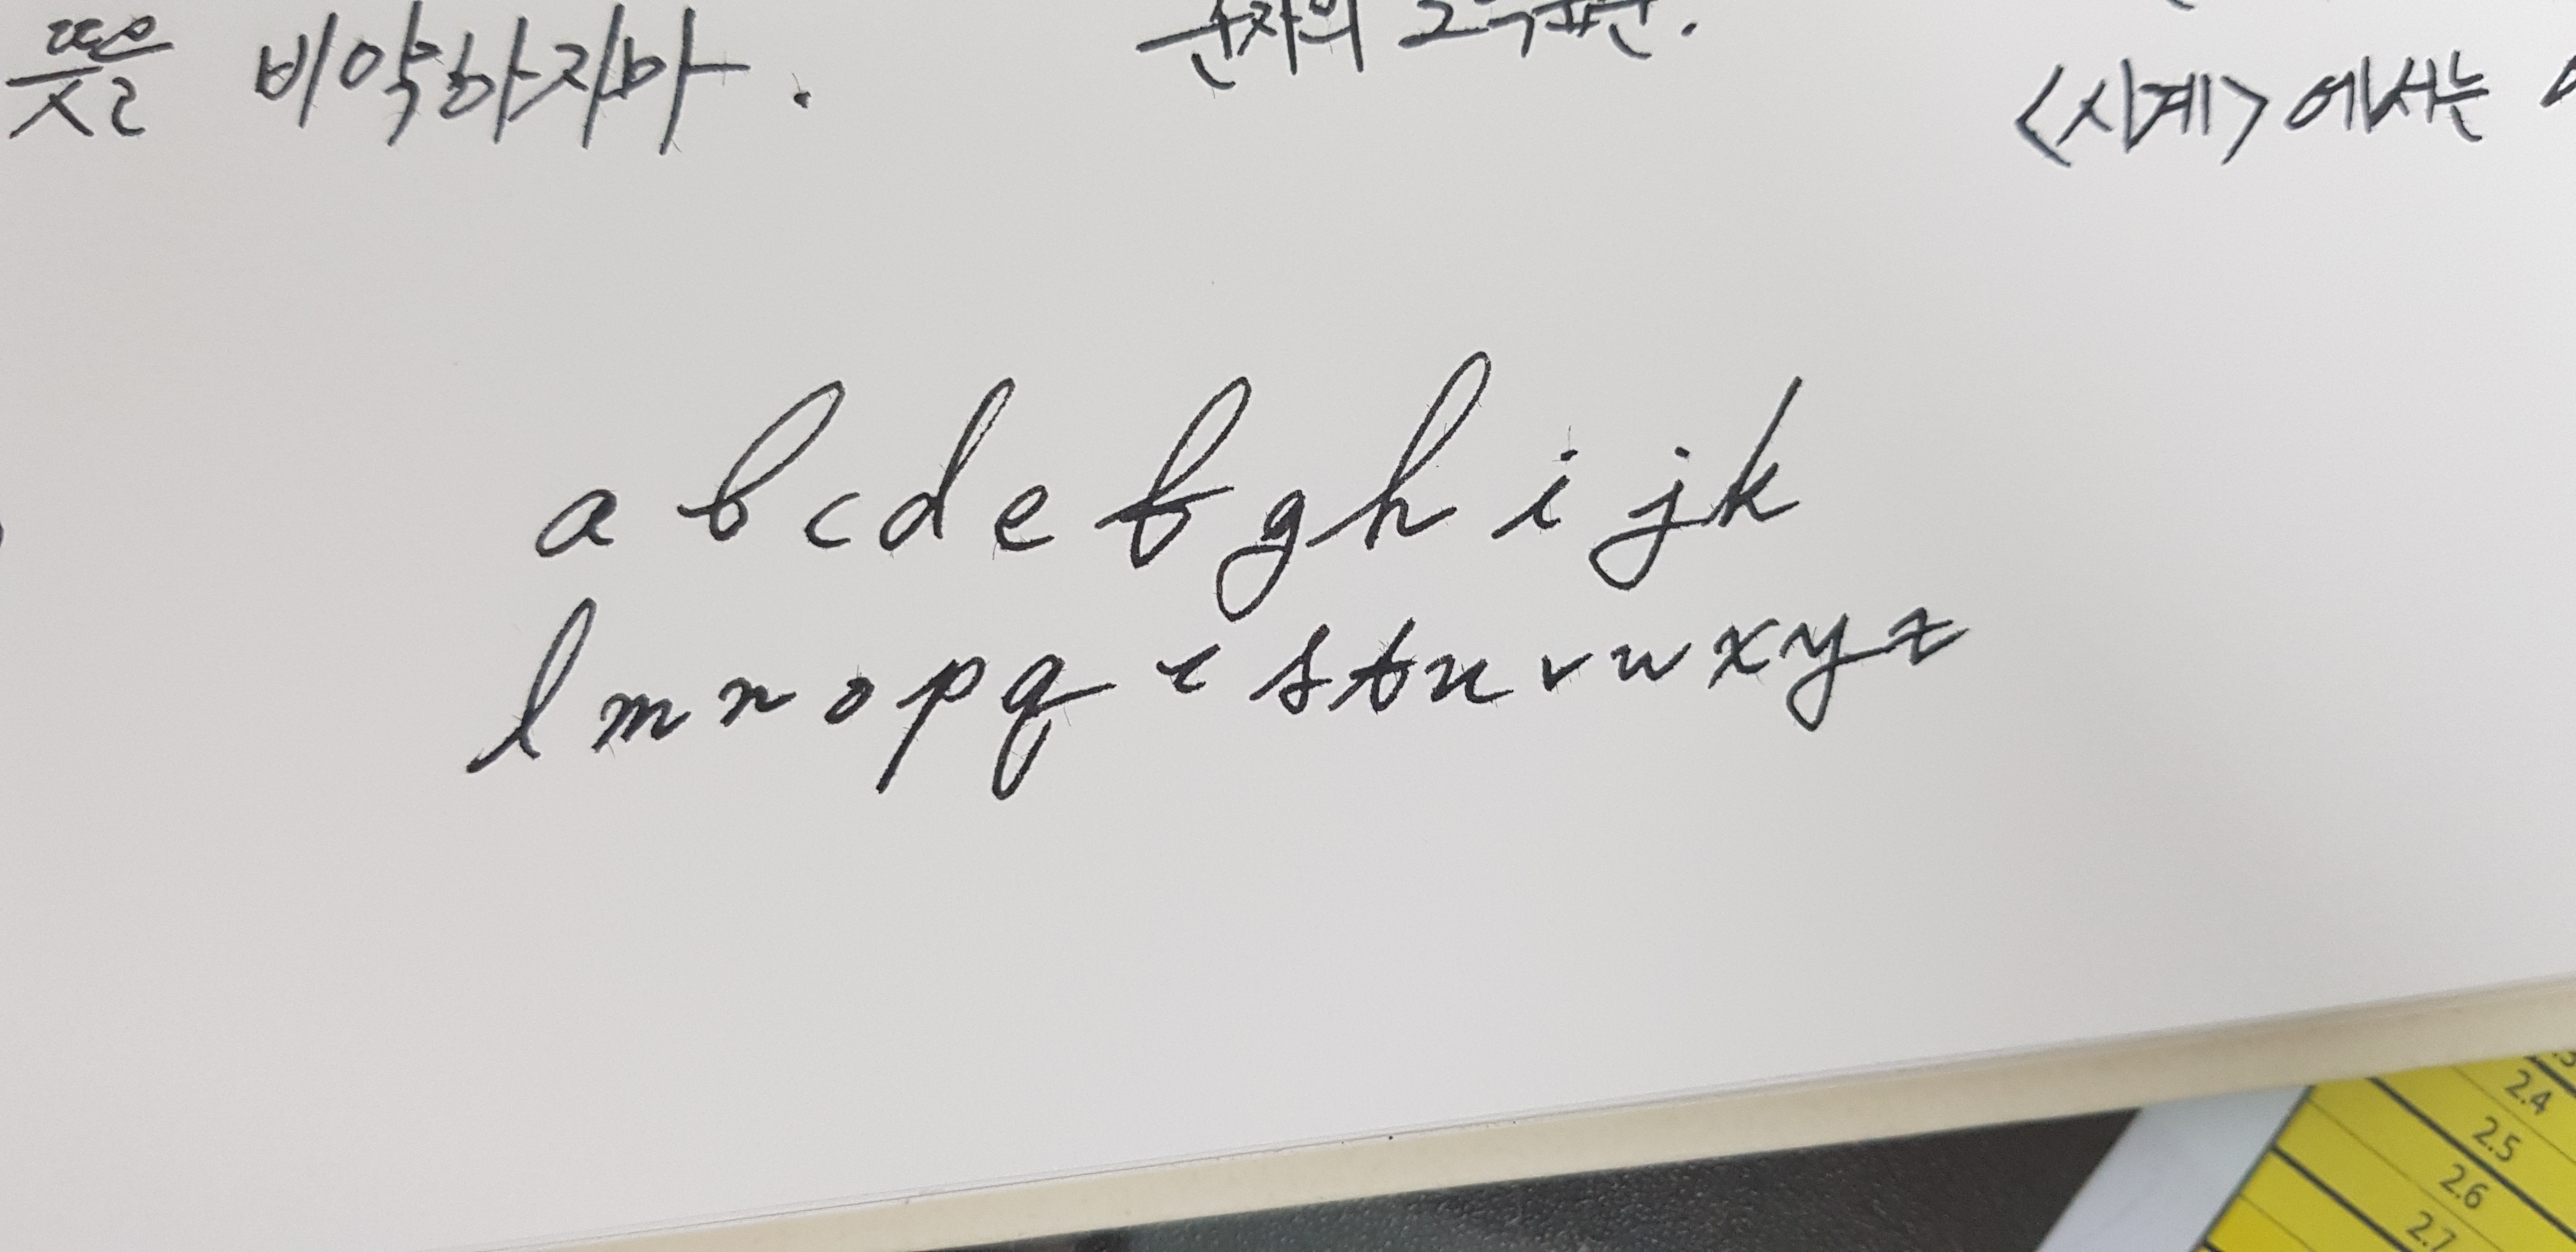 뜻을 비약하지마.
문자의 고수표면.
<시계>에서는
a b c d e f g h i j k
l m n o p q r s t u v w x y z
2.4
2.5
2.6
2.7